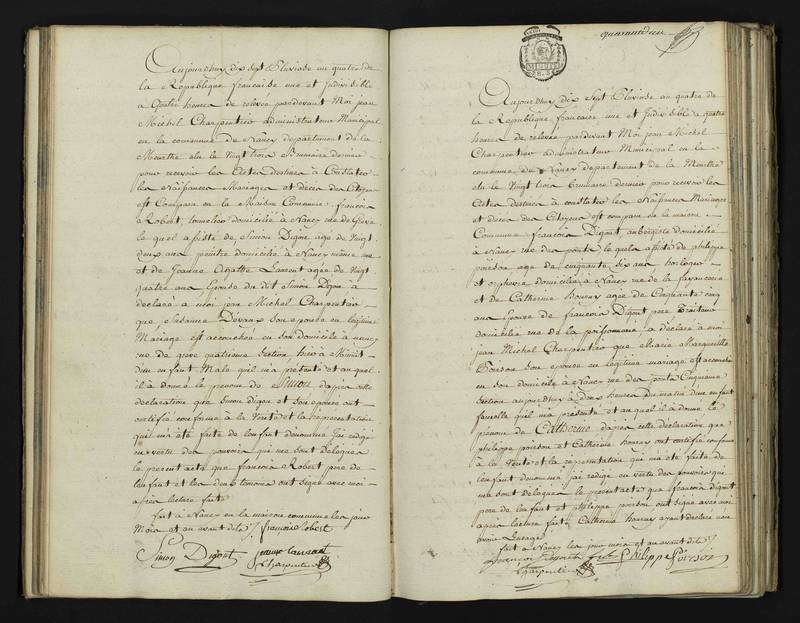 Aujourd'huy dix sept Pluviose an quatre de
la Republique francaise une et Indivisible
a quatre heures de relevée pardevant Moi jean
Michel Charpentier administrateur Municipal
en la commune de Nancy departement de la
Meurthe elu le vingt trois Brumaire dernier
pour recevoir les Actes destinés à Constater
les Naissances Mariages et décès des Citoyens
est Comparu en la Maison Commune francois
Robert, tonnelier domicilié à Nancy rue de Greve
le quel assisté de Simon Digout agé de vingt
deux ans peintre domicilié à Nancy même rue
et de Jeanne Agathe Lamont agée de vingt
quatre ans Epouse du dit Simon Digout à
déclaré a moi jean Michel Charpentier
que Susanne Devaux son epouse en légitime
Mariage est accouchée en son domicile a nancy
rue de greve quatrieme Section hier à Minuit
d'un enfant Male qu'il m'a présenté et au quel
il à donné le prenom de Simon d'après cette
déclaration que Simon digout et son epouse ont
certifié conforme à la Vérité et la représentation
qu'il m'a été faite de l'enfant dénommé J'ai redigé
en vertu des pouvoirs qui me sont délégués
le present acte que francois Robert pere de
l'enfant et les deux temoins ont signé avec moi
après lecture faite
fait à Nancy en la maison commune les jour
Mois et an avant dits / françois Robert
Simon Digout jeanne Lamont
Charpentier
quarante deux
Aujourd'huy dix Sept Pluviose an quatre de
la Republique francaise une et Indivisible a quatre
heures de relevée pardevant Moi jean Michel
Charpentier administrateur Municipal en la
commune de Nancy departement de la Meurthe
elu le vingt trois brumaire dernier pour recevoir les
Actes destinés à constater les Naissances Mariages
et décès des Citoyens est comparu de la maison
Commune francois Digout aubergiste domicilié
à Nancy rue des ponts le quel assisté de philippe
poirson agé de cinquante six ans horloger
et orphevre domicilié à Nancy rue de la fayencerie
et de Catherine Houray agée de Cinquante cinq
ans Epouse de francois Digout pere Traiteur
domiciliée rue de la poissonnerie a déclaré a moi
jean Michel Charpentier que Marie Marguerite
Poirson son epouse en légitime mariage est accouchée
en son domicile à Nancy rue des ponts Cinquieme
Section aujourd'huy à deux heures du matin d'un enfant
femelle qu'il m'a présenté et au quel il à donné le
prénom de Catherine d'après cette déclaration que
philippe poirson et Catherine houray ont certifié conforme
à la Vérité et la représentation qui m'a été faite de
l'enfant dénommé j'ai redigé en vertu des pouvoirs qui
me sont délégués le present acte que francois digout
pere de l'enfant et philippe poirson ont signé avec moi
après lecture faite Catherine Houray ayant declaré n'en
avoir l'usage
fait à Nancy les jour mois et an avant dits /
Philippe Poirson
Charpentier